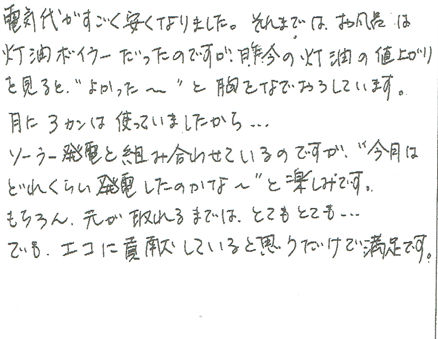 電気代がすごく安くなりました。それまでは、お風呂は
灯油ボイラーだったのですが、昨今の灯油の値上がり
を見ると、“よかった〜”と胸をなでおろしています。
月に3カンは使っていましたから…
ソーラー発電と組み合わせているのですが、“今月は
どれくらい発電したのかな〜”と楽しみです。
もちろん、元が取れるまでは、とてもとても…
でも、エコに貢献していると思うだけで満足です。